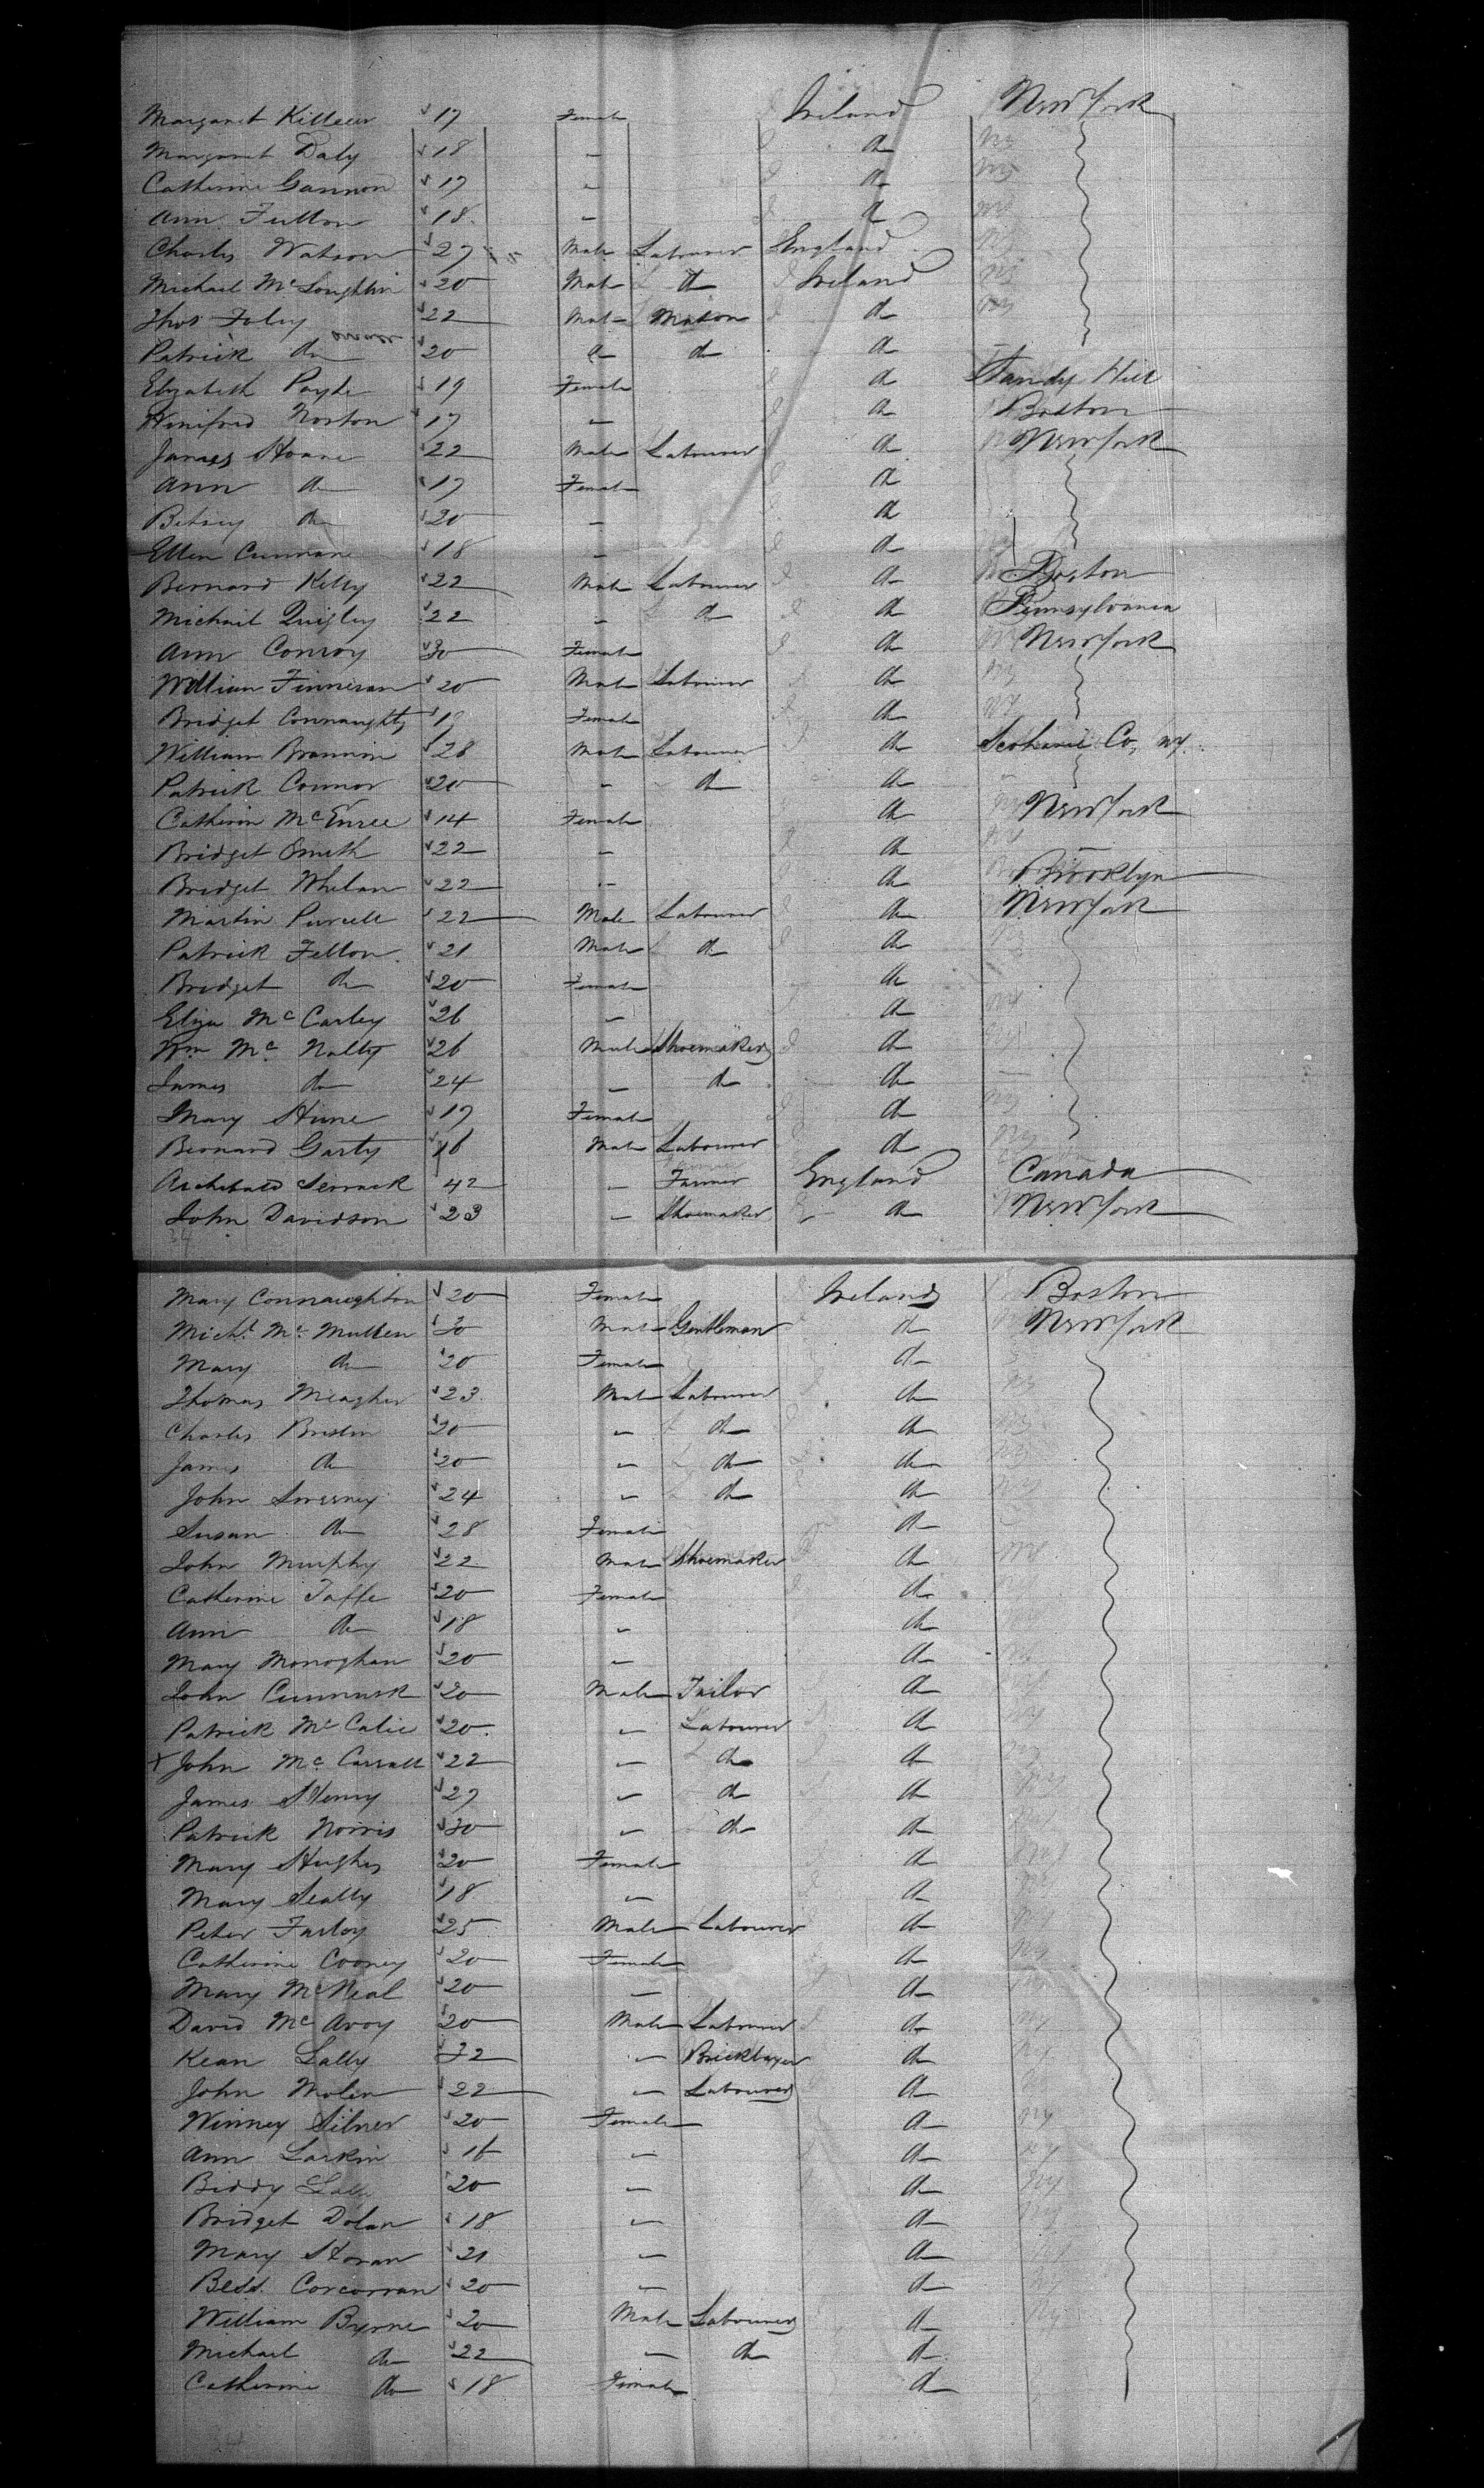 Margaret Killeen 17 Female Ireland New York
Margaret Daly 18 " do
Catherine Gannon 17 " do
Ann Fulton 18 " do
Charles Watson 27 Male Labourer England
Michael McLoughlin 20 Male do Ireland
Thos Foley 22 Male Mason do
Patrick do 20 do do do
Elizabeth 19 Female do Sandy Hill
Winifred Norton 17 " do Boston
James Hoare 22 Male Labourer do New York
Ann do 17 Female do
Betsey do 20 " do
Ellen Cunnane 18 " do
Bernard Kelly 22 Male Labourer do Boston
Michael Quigley 22 " do do Pennsylvania
Ann Conroy 30 Female do New York
William Finneran 20 Male Labourer do
Bridget Connaughty Female do
William Brannin 28 Male Labourer do Scoharie Co, NY.
Patrick Connor 20 " do do
Catherin McEnree 14 Female do New York
Bridget Smith 22 " do "
Bridget Whelan 22 " do Brooklyn
Martin Purcell 22 Male Labourer do New York
Patrick Fellon 21 Male do do
Bridget do 20 Female do
Eliza McCarley 26 " do
Wm McNalty 26 Male Shoemaker do
James do 24 " do do
Mary Hune 17 Female do
Bernard Garty 16 Male Labourer do
Archibald 42 " Farmer England Canada
John Davidson 23 " Shoemaker do New York
34
Mary Connaughton 20 Female Ireland Boston
Michl McMullen 30 Male Gentleman do New York
Mary do 20 Female do
Thomas Meagher 23 Male Labourer do
Charles Breslin 20 " do do
James do 20 " do do
John Sweeney 24 " do do
Susan do 28 Female do
John Murphy 22 Male Shoemaker do
Catherine Taffe 20 Female do
Ann do 18 " do
Mary Monoghan 20 " do
John Cummusk 20 Male Tailor do
Patrick McCalie 20 " Labourer do
x John McCarroll 22 " do do
James Henry 27 " do do
Patrick Norris 30 " do do
Mary Hughes 20 Female do
Mary Scally 18 " do
Peter Farley 25 Male Labourer do
Catherine Cooney 20 Female do
Mary McNeal 20 " do
David McAvoy 20 Male Labourer do
Kean Lally 32 " Bricklayer do
John Molen 22 " Labourer do
Winney Silner 20 Female do
Ann Larkin 16 " do
Biddy 20 " do
Bridget Dolan 18 " do
Mary Horan 21 " do
Bess. Corcorran 20 " do
William Byrne 20 Male Labourer do
Michael do 22 " do do
Catherine do 18 Female do